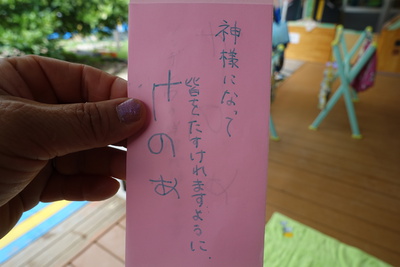 神様になって
皆をたすけれますように.
けのあ